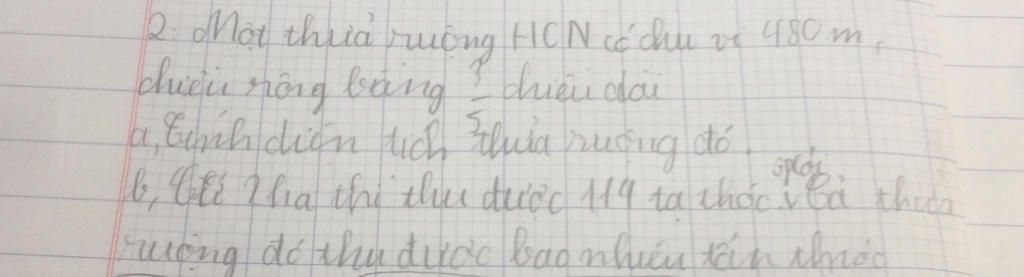 2. Một thửa ruộng HCN có chu vi 480 m,
chiều rộng bằng 3/5 chiều dài
a, Tính diện tích thửa ruộng đó.
b, Cứ ha thì thu được 119 tạ thóc. Cả thửa
ruộng đó thu được bao nhiêu tấn thóc